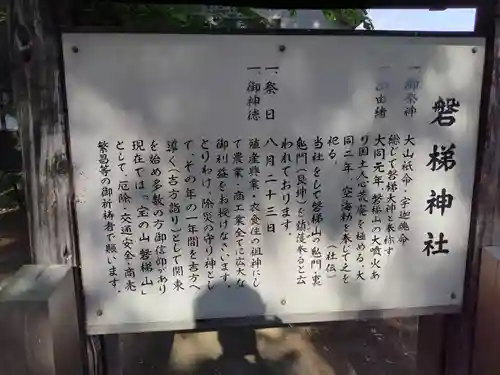 磐梯神社
一、御祭神　大山祇命　宇迦魂命
総じて磐梯大神と奉称す
一、御由緒　大同元年、磐梯山の大噴火あ
り国土人心荒廃を極める、大
同二年、空海勅を奉じて之を
祀る。　（社伝）
当社をして磐梯山の鬼門裏
鬼門（艮神）を鎮護来ると云
われております。
一、祭日　八月二十三日
一、御神徳　殖産興業、衣食住の祖神にし
て農業・商工業全てに広大な
御利益をお授けなさいます。
とりわけ、除災の守り神とし
て、その年の一年間を吉方へ
導く（吉方詣り）として関東
を始め多数の方御信仰があり
現在では、「宝の山　磐梯山」
として、厄除・交通安全・商売
繁昌等の御祈祷者で賑います。